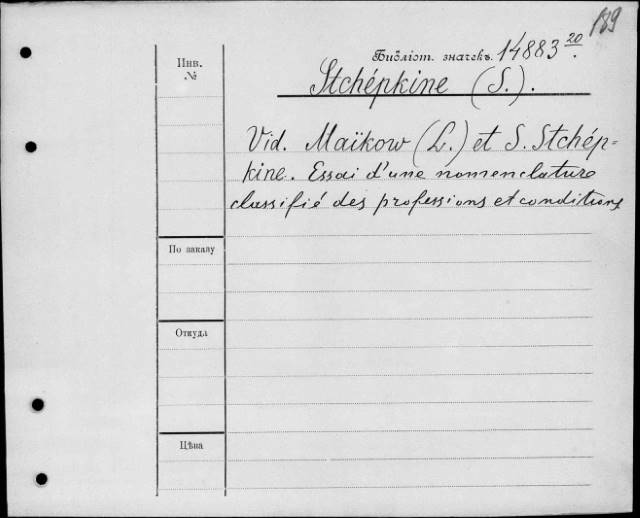 189
Библіот. значекъ. 14883 20.
Инв.
№
Stchépkine (S.).
Vid. Maïkow (L.) et S. Stchép=
kine. Essai d'une nomenclature
classifié des professions et conditions
По заказу
Откуда
Цѣна